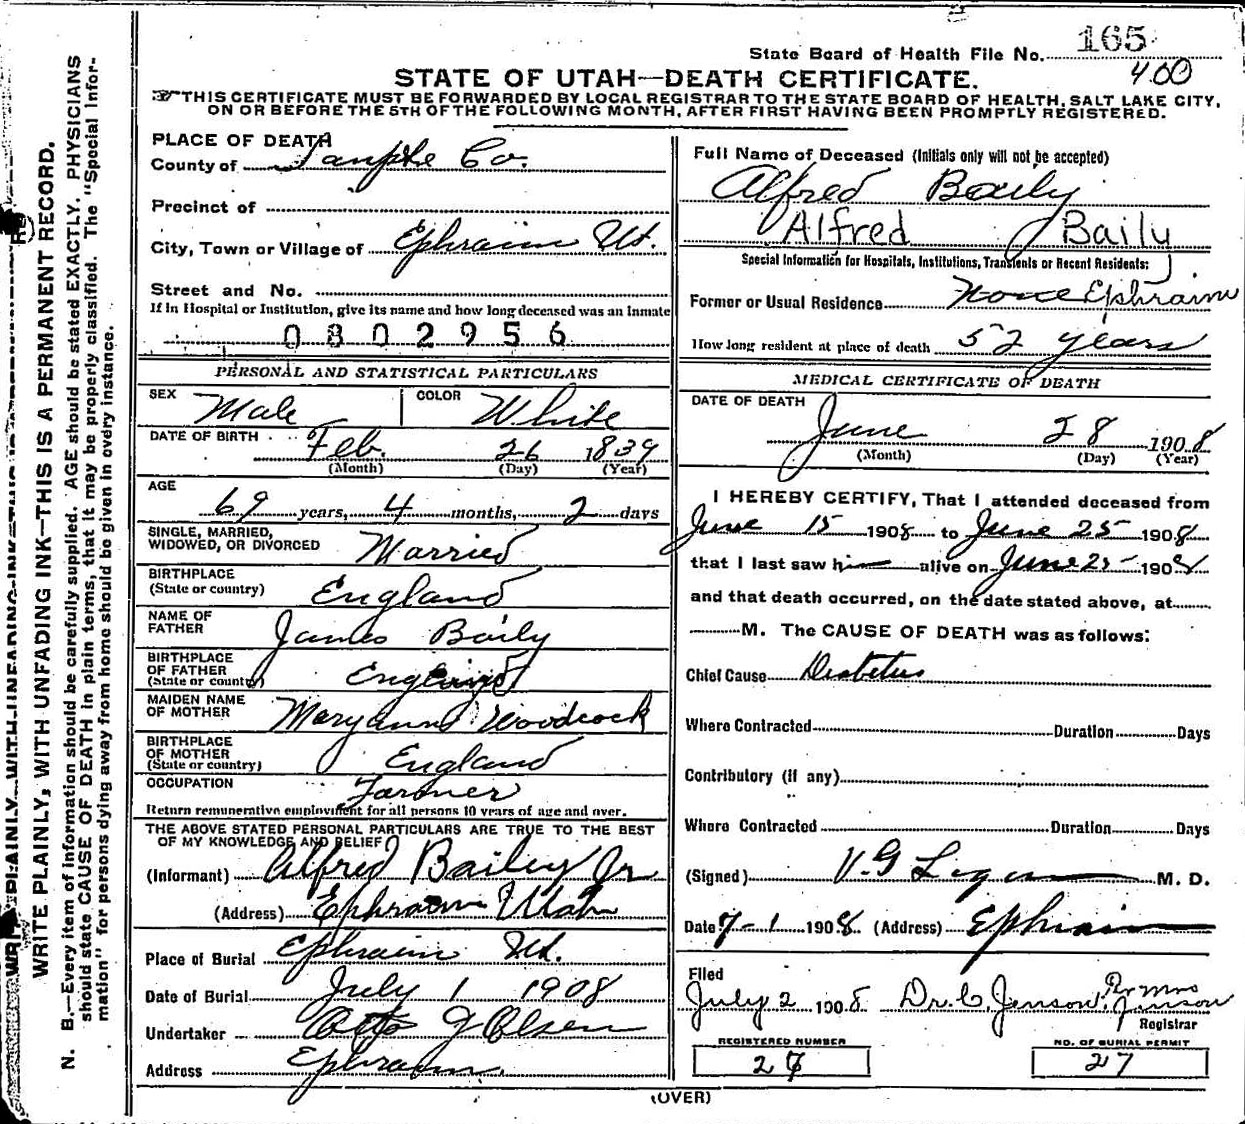 State Board of Health File No. 165
400
STATE OF UTAH—DEATH CERTIFICATE.
THIS CERTIFICATE MUST BE FORWARDED BY LOCAL REGISTRAR TO THE STATE BOARD OF HEALTH, SALT LAKE CITY,
ON OR BEFORE THE 5TH OF THE FOLLOWING MONTH, AFTER FIRST HAVING BEEN PROMPTLY REGISTERED.
WRITE PLAINLY, WITH UNFADING INK—THIS IS A PERMANENT RECORD.
N. B.—Every item of information should be carefully supplied. AGE should be stated EXACTLY. PHYSICIANS
should state CAUSE OF DEATH in plain terms, that it may be properly classified. The "Special Infor-
mation" for persons dying away from home should be given in every instance.
PLACE OF DEATH
County of Sanpete Co.
Precinct of
City, Town or Village of Ephraim Ut.
Street and No.
If in Hospital or Institution, give its name and how long deceased was an inmate
0802956
PERSONAL AND STATISTICAL PARTICULARS
SEX Male COLOR White
DATE OF BIRTH Feb. 26 1839
(Month) (Day) (Year)
AGE
69 years, 4 months, 2 days
SINGLE, MARRIED,
WIDOWED, OR DIVORCED Married
BIRTHPLACE
(State or country) England
NAME OF
FATHER James Baily
BIRTHPLACE
OF FATHER
(State or country) England
MAIDEN NAME
OF MOTHER Maryann Woodcock
BIRTHPLACE
OF MOTHER
(State or country) England
OCCUPATION Farmer
Return remunerative employment for all persons 10 years of age and over.
THE ABOVE STATED PERSONAL PARTICULARS ARE TRUE TO THE BEST
OF MY KNOWLEDGE AND BELIEF
(Informant) Alfred Bailey Jr
(Address) Ephraim Utah
Place of Burial Ephraim Ut.
Date of Burial July 1 1908
Undertaker Otto J Olsen
Address Ephraim
Full Name of Deceased (Initials only will not be accepted)
Alfred Baily
Alfred Baily
Special Information for Hospitals, Institutions, Transients or Recent Residents:
Former or Usual Residence Home Ephraim
How long resident at place of death 52 years
MEDICAL CERTIFICATE OF DEATH
DATE OF DEATH
June 28 1908
(Month) (Day) (Year)
I HEREBY CERTIFY, That I attended deceased from
June 15 1908 to June 25 1908
that I last saw him alive on June 25 1908
and that death occurred, on the date stated above, at
M. The CAUSE OF DEATH was as follows:
Chief Cause Diabetus
Where Contracted Duration Days
Contributory (if any)
Where Contracted Duration Days
(Signed) M. D.
Date 7-1 1908. (Address) Ephraim
Filed
July 2 1908 Dr. C. Jenson, Per Mrs Jenson
Registrar
REGISTERED NUMBER
27
NO. OF BURIAL PERMIT
27
(OVER)